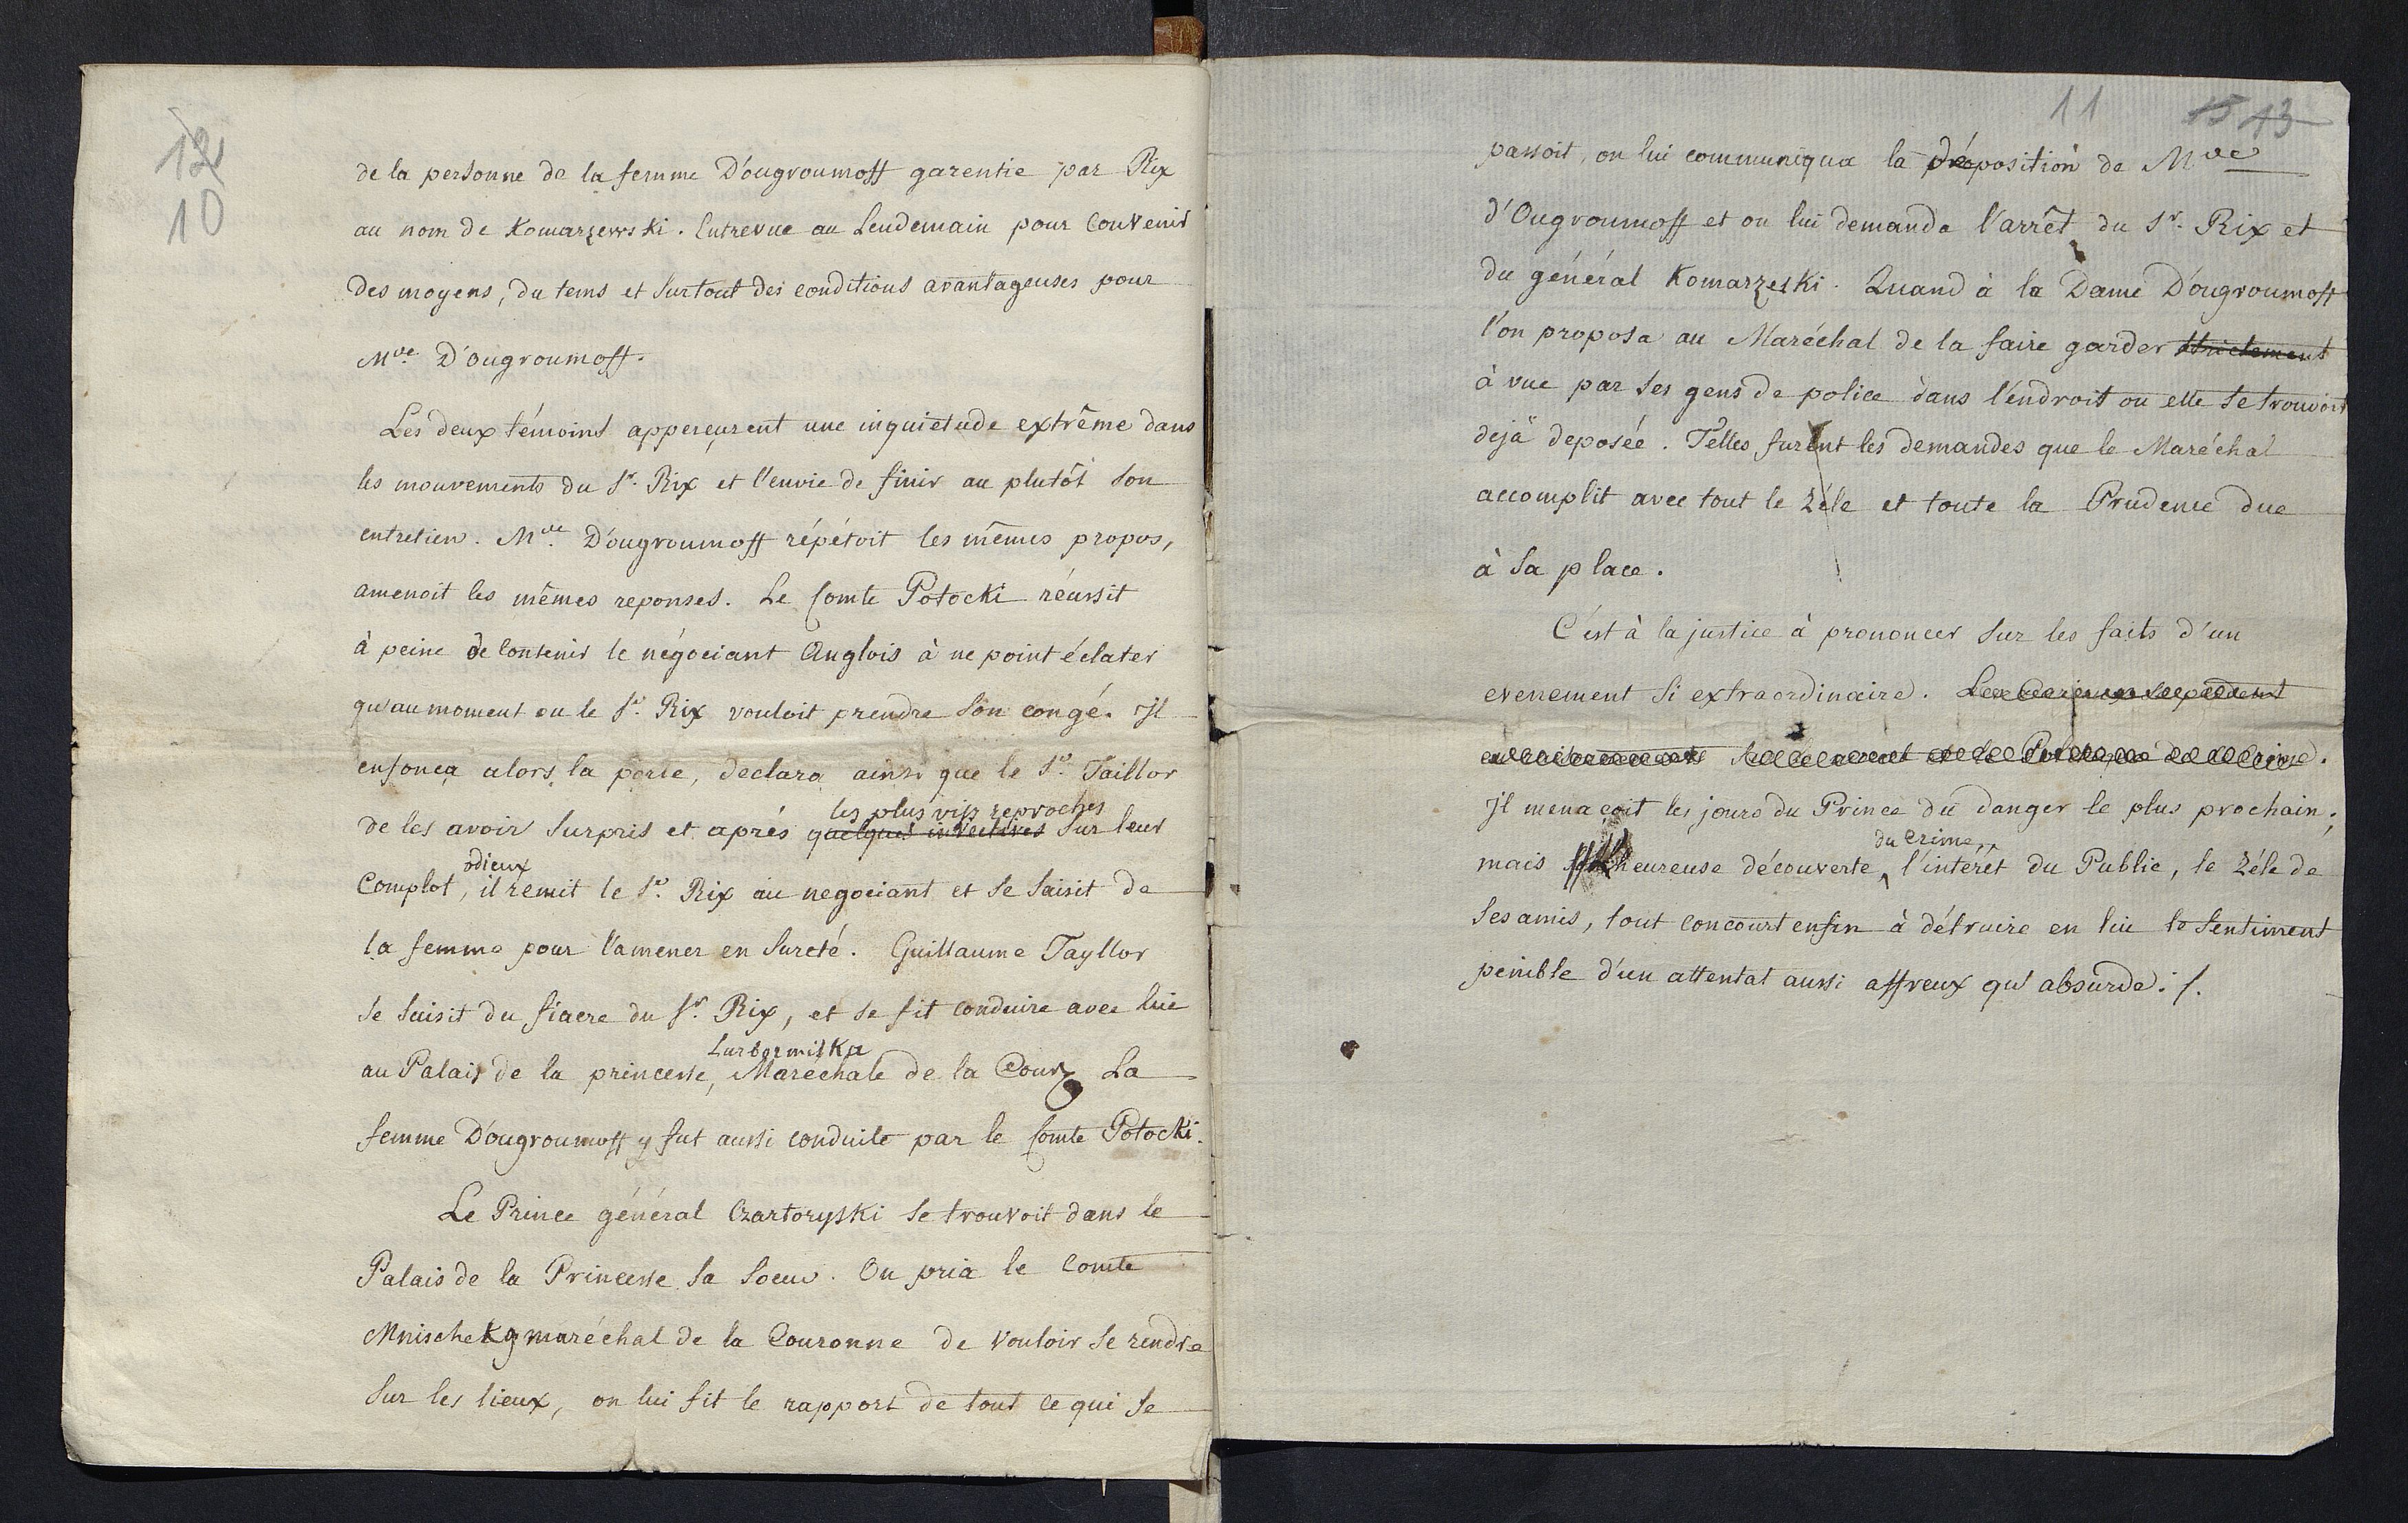 12
10
de la personne de la femme D'ougroumoff garentie par Rix
au nom de Komarzewski. Entrevue au Lendemain pour Convenir
des moyens, du tems et surtout des conditions avantageuses pour
Mde D'ougroumoff.
Les deux témoins apperçurent une inquietude extrême dans
les mouvements du Sr. Rix et l'envie de finir au plutôt son
entretien. Mde D'ougroumoff répétoit les mêmes propos,
amenoit les mêmes reponses. Le Comte Potocki réussit
à peine de Contenir le négociant Anglois à ne point éclater
qu'au moment ou le Sr. Rix vouloit prendre son congé. Il
enfonça alors la porte, declara ainsi que le Sr. Taillor
les plus vifs reproches
de les avoir surpris et aprés quelques invectives sur leur
odieux
Complot, il remit le Sr. Rix au negociant et se saisit de
la femme pour l'amener en sureté. Guillaume Tayllor
se saisit du fiacre du Sr. Rix, et se fit conduire avec lui
Lurbormiska
au Palais de la princesse, Maréchale de la Cour, La
femme D'ougroumoff y fut aussi conduite par le Comte Potocki.
Le Prince général Czartoryski se trouvoit dans le
Palais de la Princesse sa soeur. On pria le Comte
Mnischek g maréchal de la Couronne de vouloir se rendre
sur les lieux, on lui fit le rapport de tout ce qui se
11 13
passoit, on lui communiqua la déposition de Mde
d'Ougroumoff et on lui demanda l'arrêt du Sr. Rix et
du général Komarzeski. Quand à la Dame D'ougroumoff
l'on proposa au Maréchal de la faire garder strictement
à vue par ses gens de police dans l'endroit ou elle se trouvoit
dejà deposée. Telles furent les demandes que le Maréchal
accomplit avec tout le zéle et toute la Prudence due
à sa place.
C'est à la justice à prononcer sur les faits d'un
evenement si extraordinaire.
Il menaçoit les jours du Prince du danger le plus prochain;
du Crime,
mais heureuse découverte, l'intérêt du Public, le zéle de
ses amis, tout concourt enfin à détruire en lui le sentiment
penible d'un attentat aussi affreux qu'absurde. /.